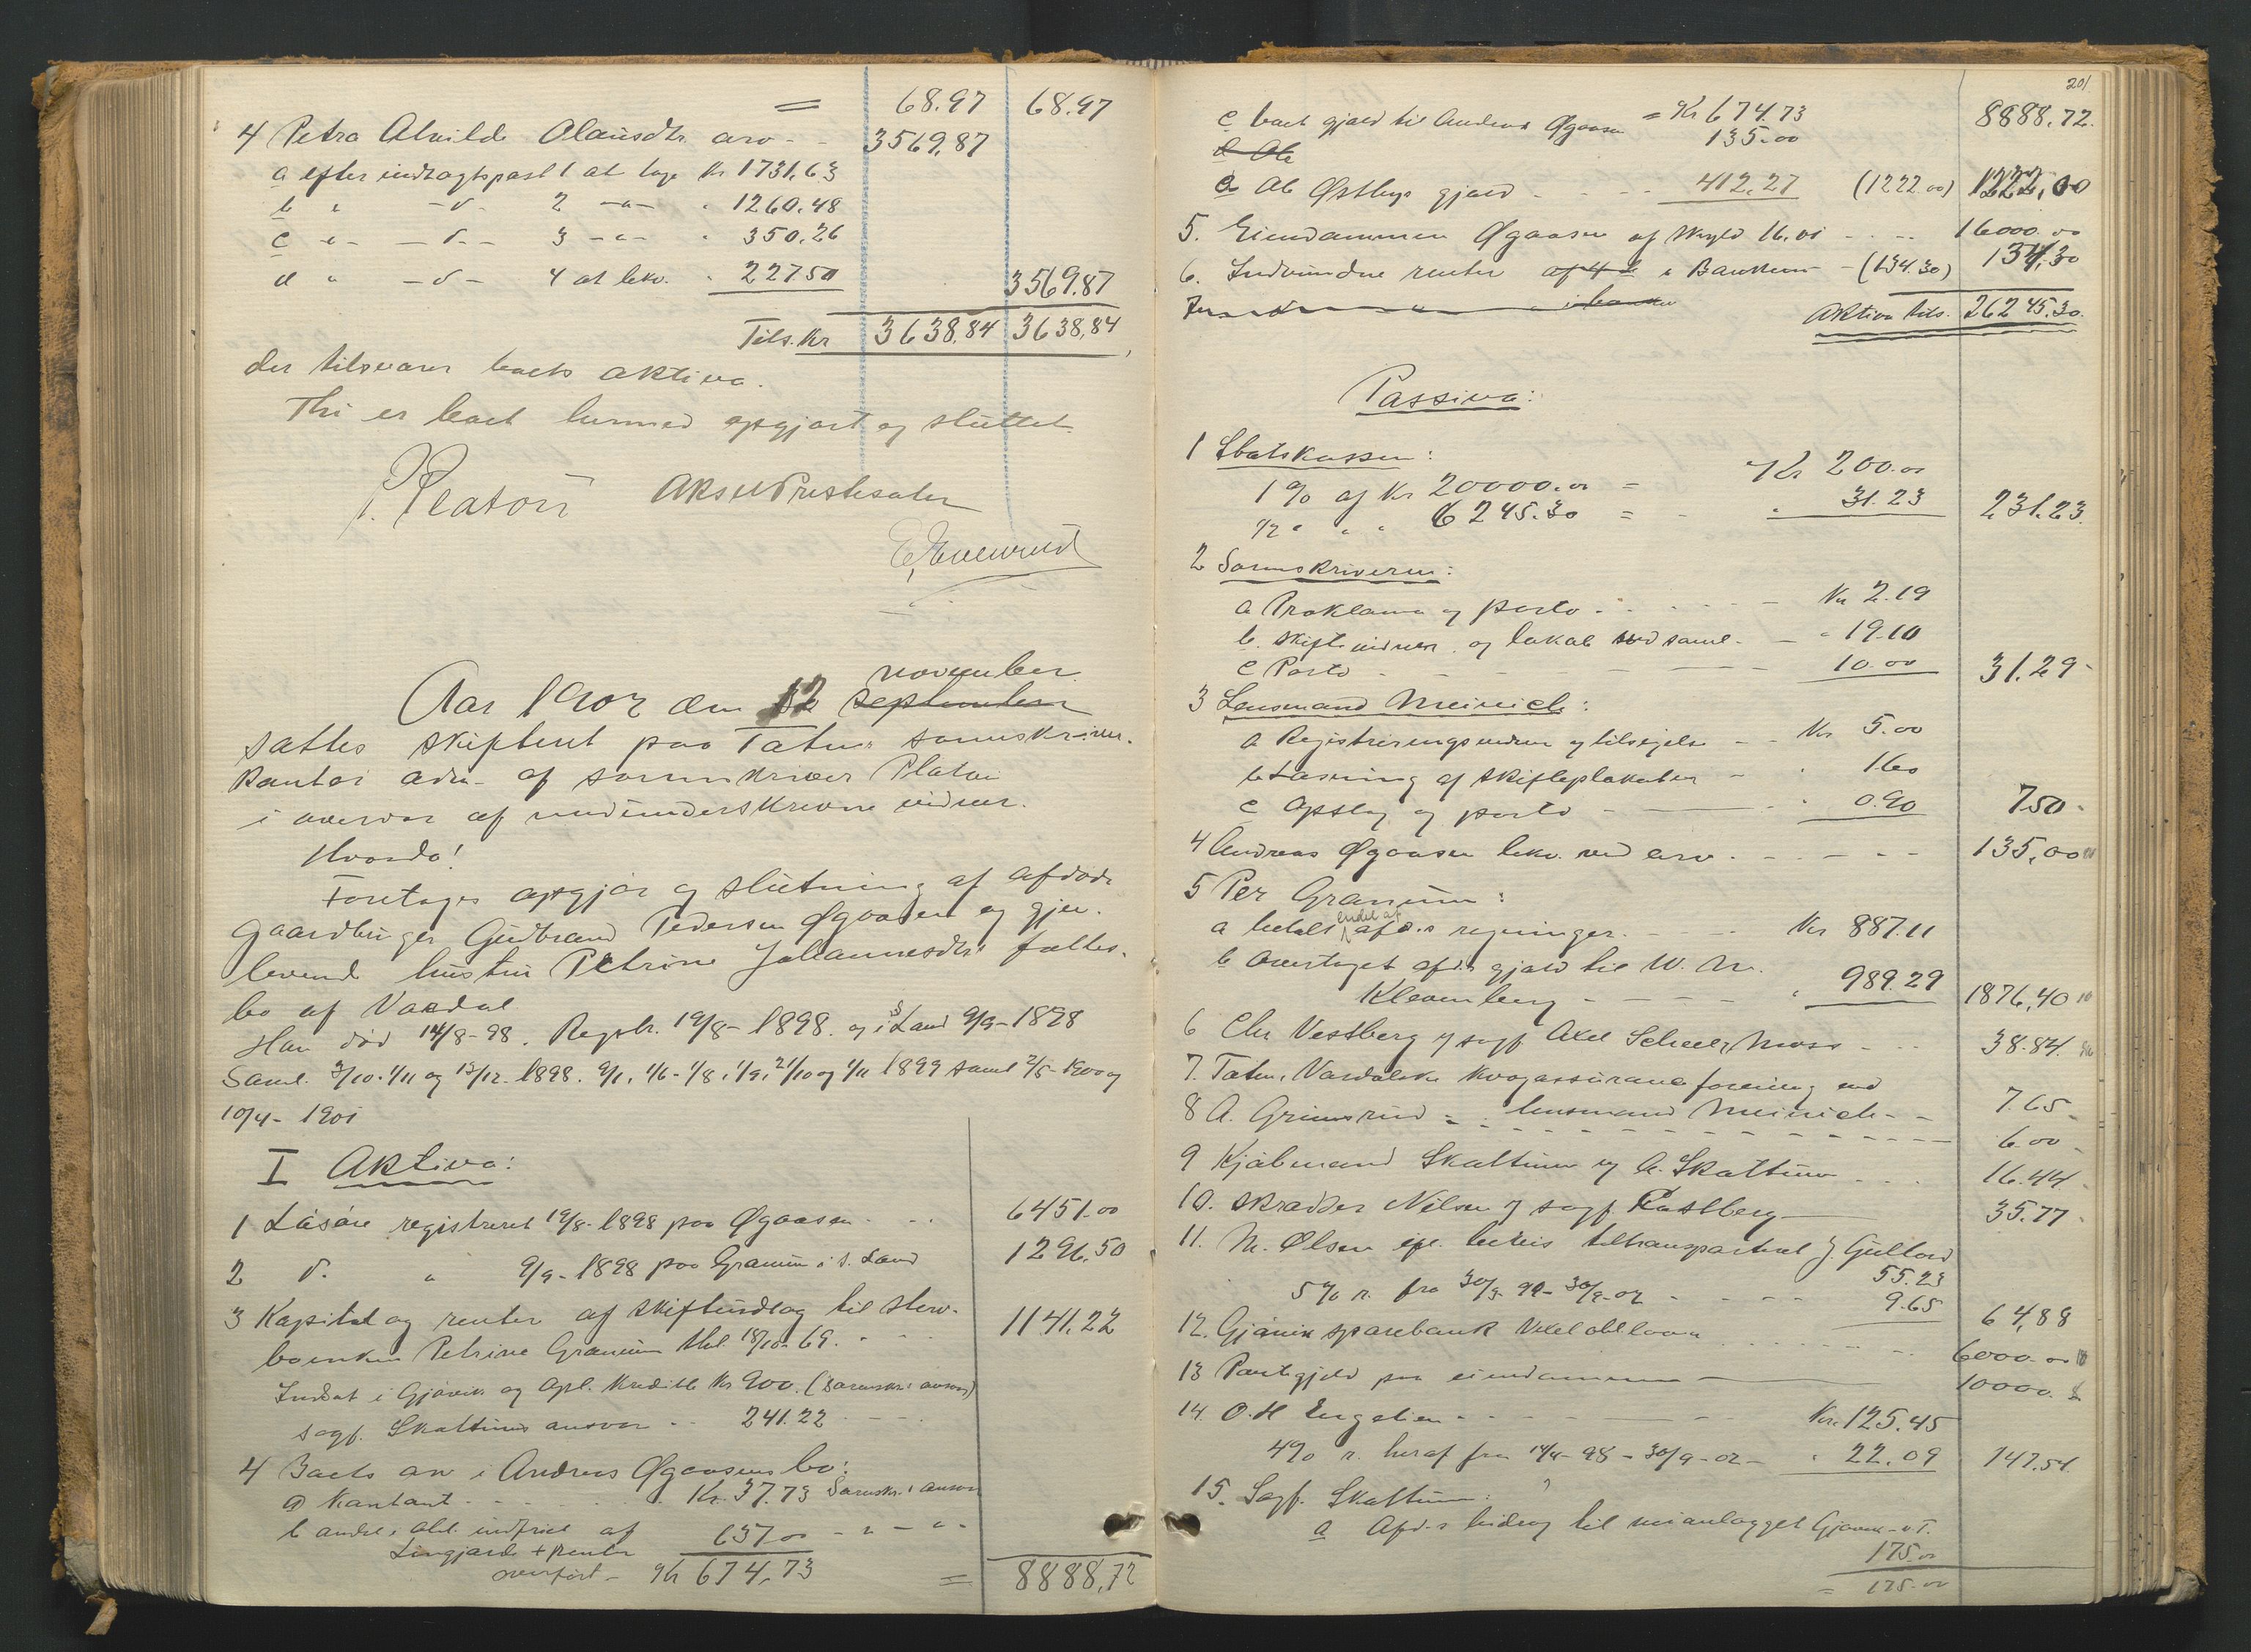 = 68.97 68.97
4 Petra Alvilde Olausdtr. arv - - 3569,87
a efter indtægtspost 1 at tage Kr 1731,63
b " -d- 2 -"- " 1260.48
c -"- -d- 3 -"- " 350.26
d " -d- 4 at bekv. " 227.50 3569.87
Tils. Kr 3638,84 3638,84
der tilsvarer boets aktiva.
Thi er boet hermed opgjort og sluttet.
Platou Aksel Prestesæter
E. Evenrud
november
Aar 1902 den 12 september
sattes skifteret paa Toten sorenskriver-
kontor adm. af sorenskriver Platou
i overvær af medunderskrevne vidner.
Hvorda!
Foretages opgjør og slutning af afdøde
gaardbruger Gudbrand Pedersen Øgaasen og gjen-
levende hustru Petrine Johannesdtr fælles-
bo af Vardal
Han død 14/8-98. Registr. 19/8-1898. og i S. Land 9/9-1898
Saml. 3/10. 1/11 og 13/12. 1898. 9/1, 1/6- 1/8, 1/9, 21/10 og 1/11 1899 samt 2/5-1900 og
10/4-1901
I Aktiva:
1 Løsøre registreret 19/8-1898 paa Øgaasen - - - 6451.00
2 d. " 9/9-1898 paa Granum i S. Land 1296.50
3 Kapital og renter af skifteudlæg til sterv-
boenken Petrine Granum tlvl. 18/10-69. - - - 1141,22
Indsat i Gjøvik og Opl. Kreditb Kr 900. (Sorenskr: ansvar)
sagf. Skattums ansvar - - 241.22 - - -
4 Boets arv i Andreas Øgaasens bo:
a) Kontant - - - Kr. 37.73 Sorenskr: ansvar
b andel i obl. indfriet af 637.00 - " - " -
Lingjærde + renter
overført - Kr 674,73 = 8888,72
201
c boets gjæld til Andreas Øgaasen = Kr 674.73 8888,72.
135.00
d Ole
d Ole Østbys gjæld - - - 412,27 (1222.00) 1222,00
5. Eiendommen Øgaasen af skyld 16.01 - - - 16000.00
6. Indvundne renter af 4 d i Banken - (134.30) 134,30
i banken
Aktiva tils. 26245.30.
Passiva:
1 Statskassen:
1 % af Kr 20000.00 = Kr 200.00
1/2 " " " 6245.30 = - " 31.23 231.23.
2 Sorenskriveren:
a Proklama og porto - - - Kr 2.19
b. Skiftevidner og lokale ved saml. - " 19.10
c Porto - - - 10.00 31.29-
3 Lensmand Meinich:
a Registreringsvidner og tilsigelse - - Kr 5.00
b Læsning af skifteplakater - " 1.60
c Opslag og porto - - " 0.90 7.50-
4 Andreas Øgaasen bekv. ved arv. - - - 135,00
5 Per Granum:
a betalt endel af afd.s regninger. - - - Kr 887.11
b Overtaget afd.s gjæld til W. M.
Klevenberg - - - " 989.29 1876,40
6 Chr Vestberg v sagf Axel Scheel, Moss - - - 38.84.
7. Toten, Vardalske kvægassuranceforening ved
lensmand Meinich - - 7.65-
8 A. Grimsrud - - - 6.00-
9 Kjøbmand Skattum og A. Skattum - - - 16.44-
10. Skrædder Nilsen v sagf. Rostberg 35.77-
11. M. Ølsen efl. bevis tiltransporteret J. Gullord
55.23
5 % r. fra 30/3-99-30/9-02 - - - 9.65 64,88
12. Gjøvik sparebank Vexelobl laan - - - 6000.00
13 Pantegjeld paa eiendommen 10000.
14. O. H Engelien - - - Kr. 125.45
4 % r. heraf fra 14/4-98-30/9-02- " 22.09 147.54.
15. Sagf. Skattum:
a Afd.s bidrag til veianlægget Gjøvik - v T.
175.00
= 175.00